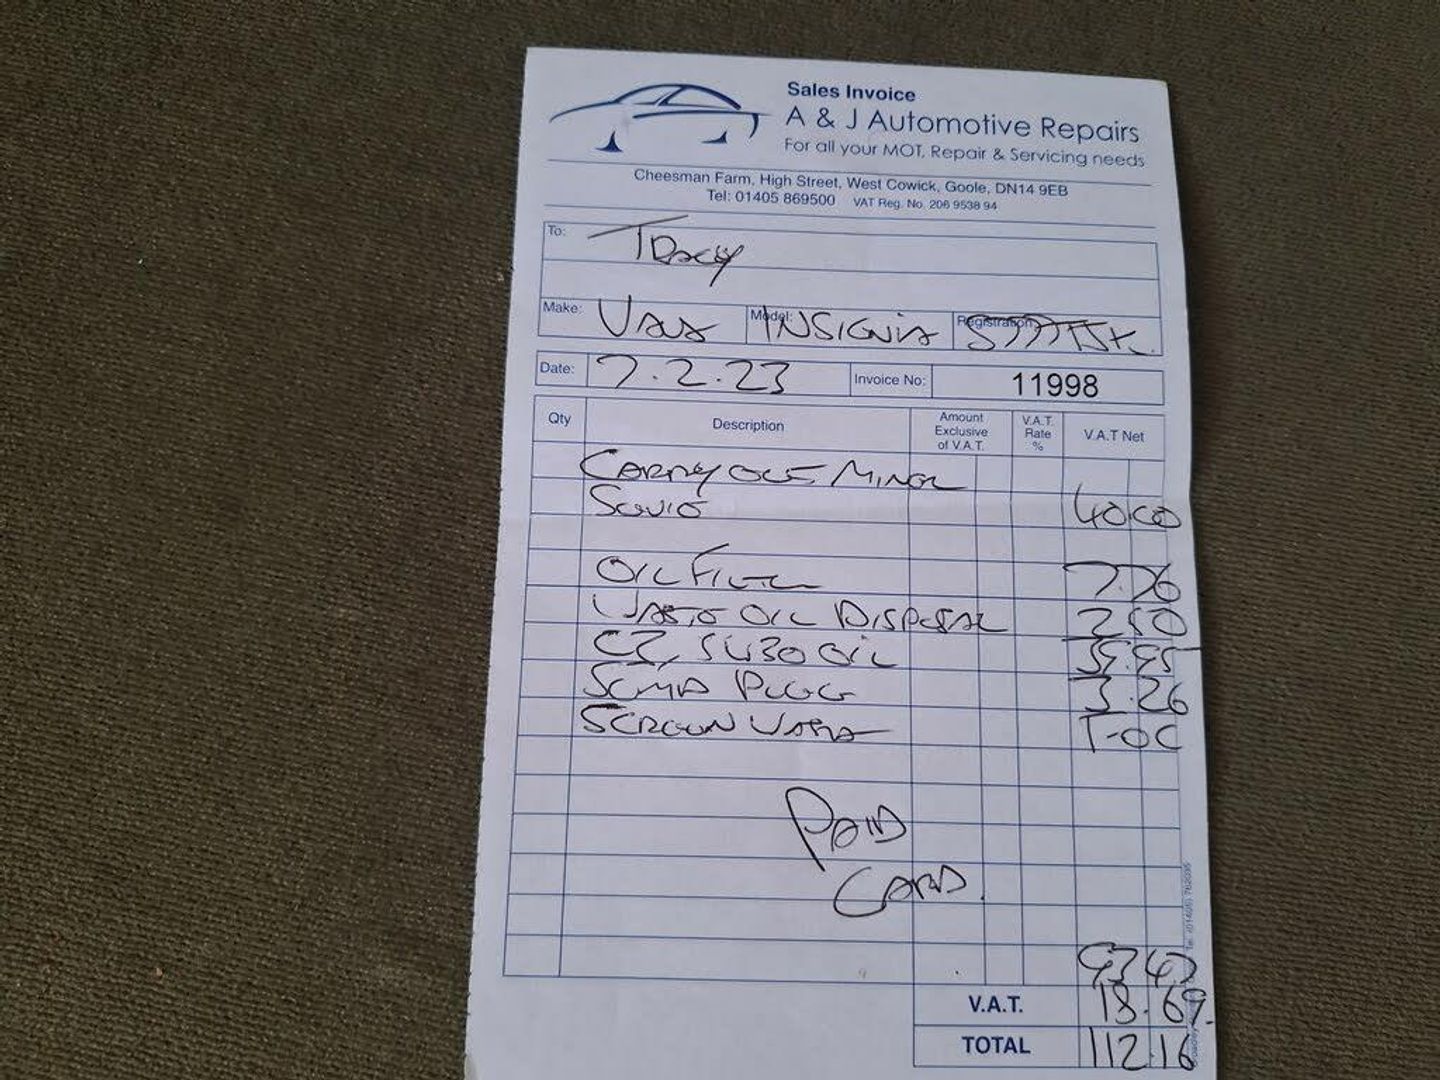 Sales Invoice
A & J Automotive Repairs
For all your MOT, Repair & Servicing needs
Cheesman Farm, High Street, West Cowick, Goole, DN14 9EB
Tel: 01405 869500 VAT Reg. No. 206 9538 94
To: Tracy
Make: Vaux Model: INSIGNIA Registration:
Date: 7.2.23 Invoice No: 11998
Qty Description Amount Exclusive of V.A.T. V.A.T. Rate % V.A.T Net
CARRY OUT MINOR
SERVICE 40.00
OIL FILTER 7.76
WASTE OIL DISPOSAL 2.50
C3, 5W30 OIL
SUMP PLUG 3.26
SCREEN WASH
PAID
CARD.
93 47
V.A.T. 18.69
TOTAL 112.16
Tel. (01405) 762035